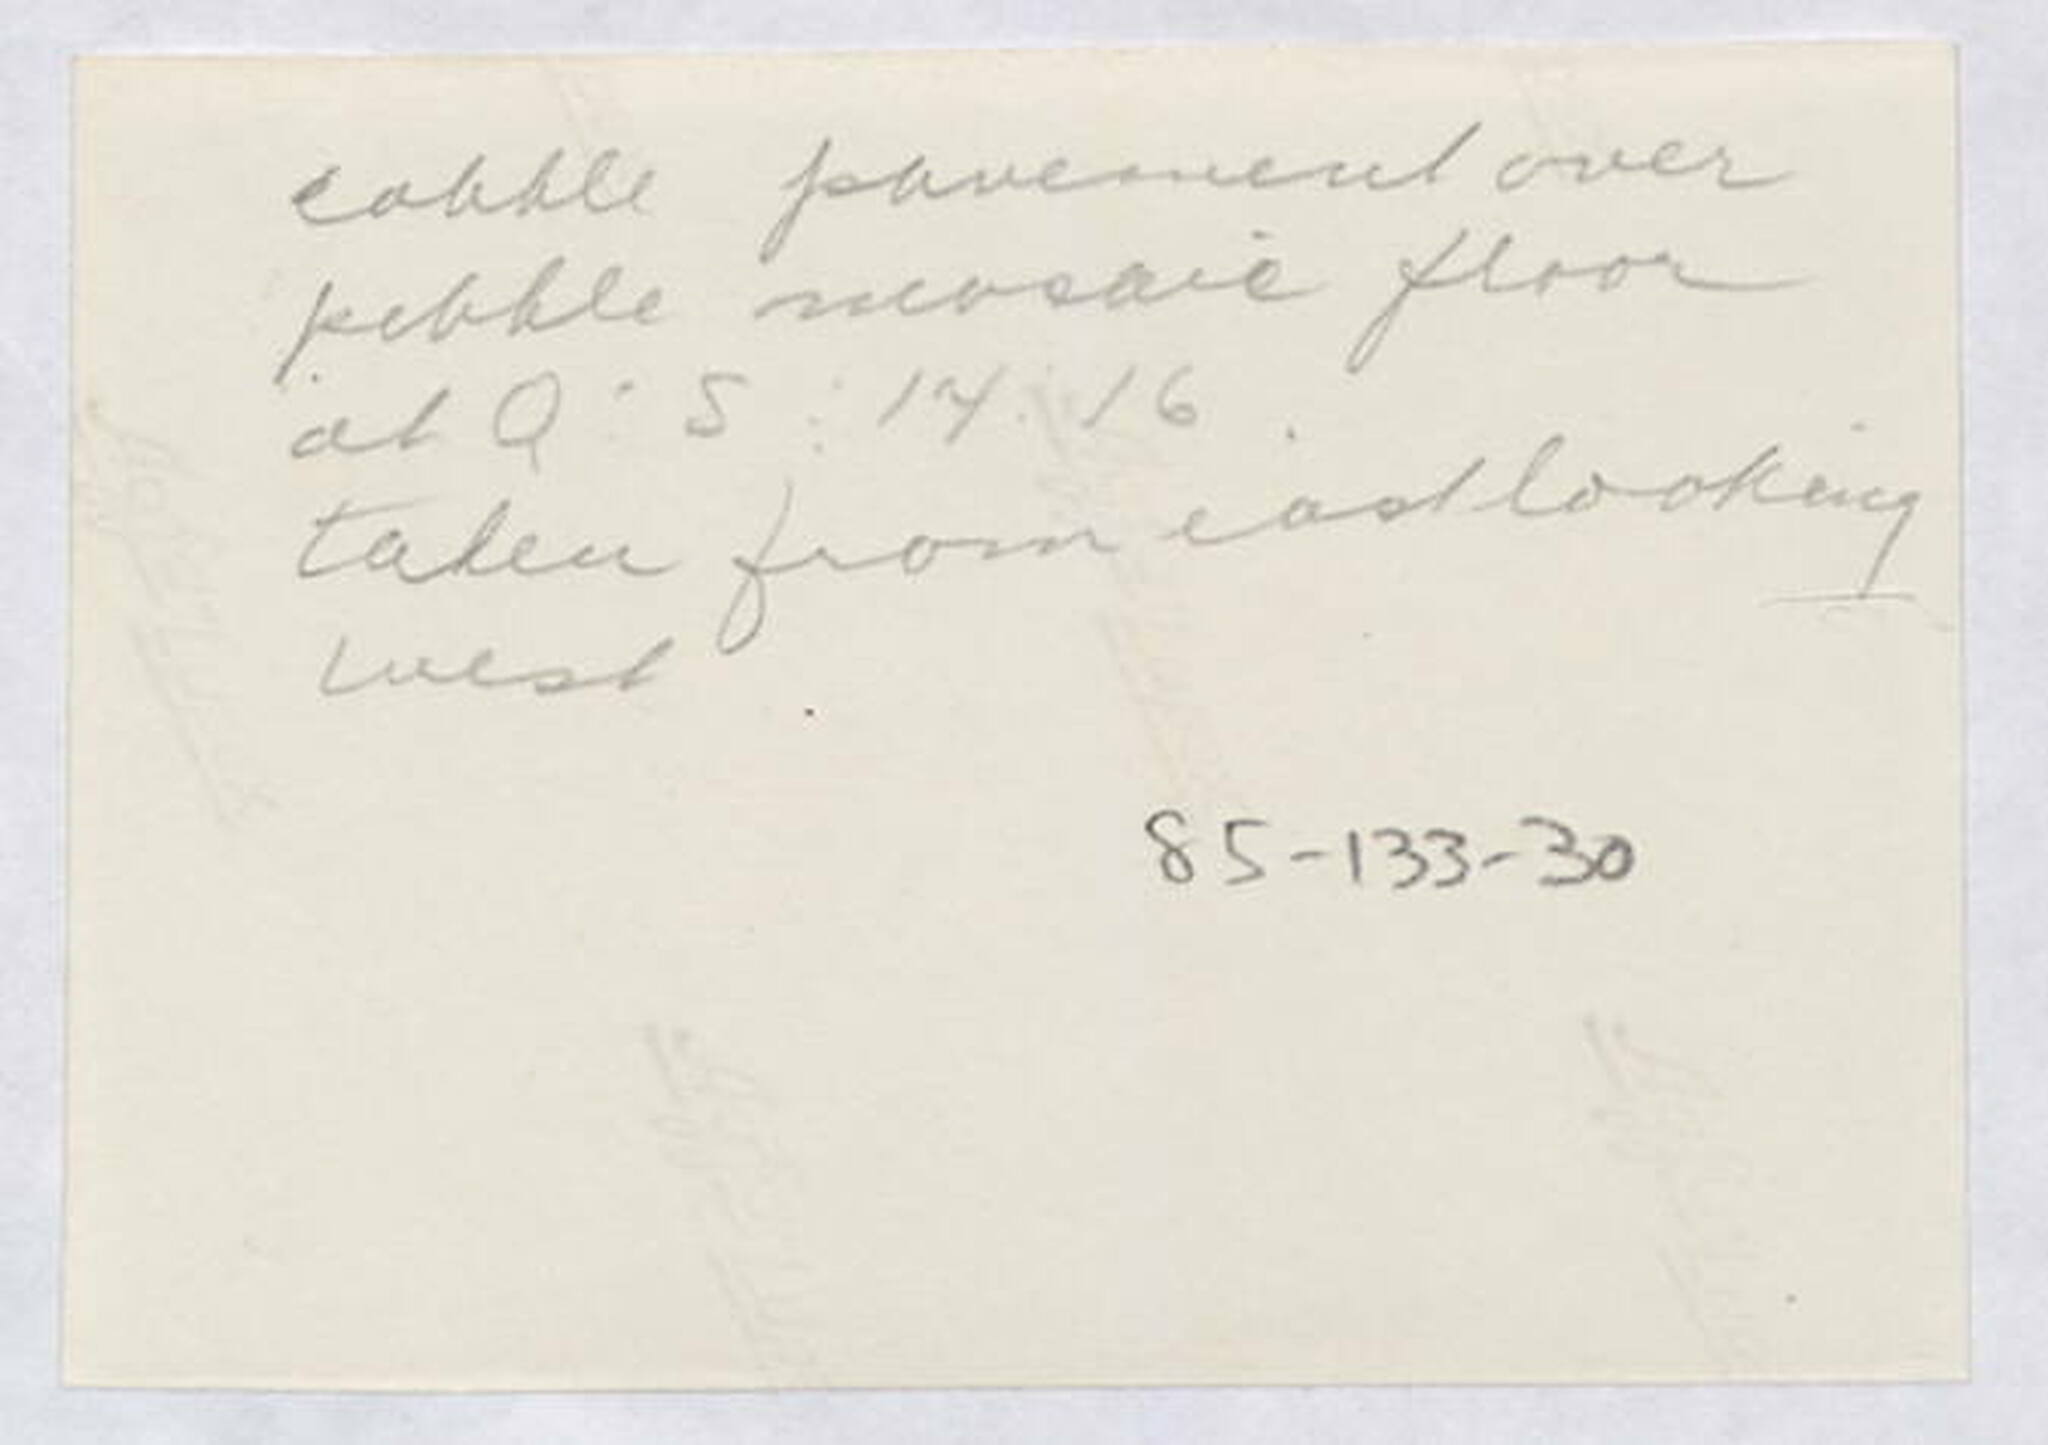 cobble pavement over
pebble mosaic floor
at Q : 5 : 14 : 16
taken from east looking
west
85-133-30